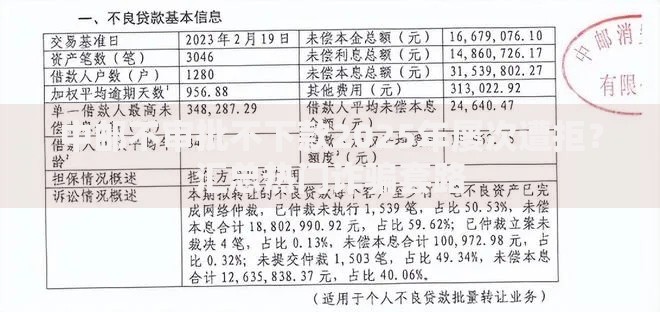 一、不良贷款基本信息
交易基准日 2023年2月19日 未偿本金总额（元） 16,679,076.10
资产笔数（笔） 3046 未偿利息总额（元） 14,860,726.17
借款人户数（户） 1280 未偿本息总额（元） 31,539,802.27
加权平均逾期天数¹ 956.88 其他费用（元） 313,022.92
单一借款人最高未偿 348,287.29 借款人平均未偿本息 24,640.47
额度²（元）
担保情况概述
诉讼情况概述 不良资产已完
成网络仲裁，已仲裁未执行1,539笔，占比50.53%，未偿
本息合计18,802,990.92元，占比59.62%；已仲裁立案未
裁决4笔，占比0.13%，未偿本息合计100,972.98元，占
比0.32%；未提交仲裁1,503笔，占比49.34%，未偿本息合
计12,635,838.37元，占比40.06%。
（适用于个人不良贷款批量转让业务）
中邮消
有限